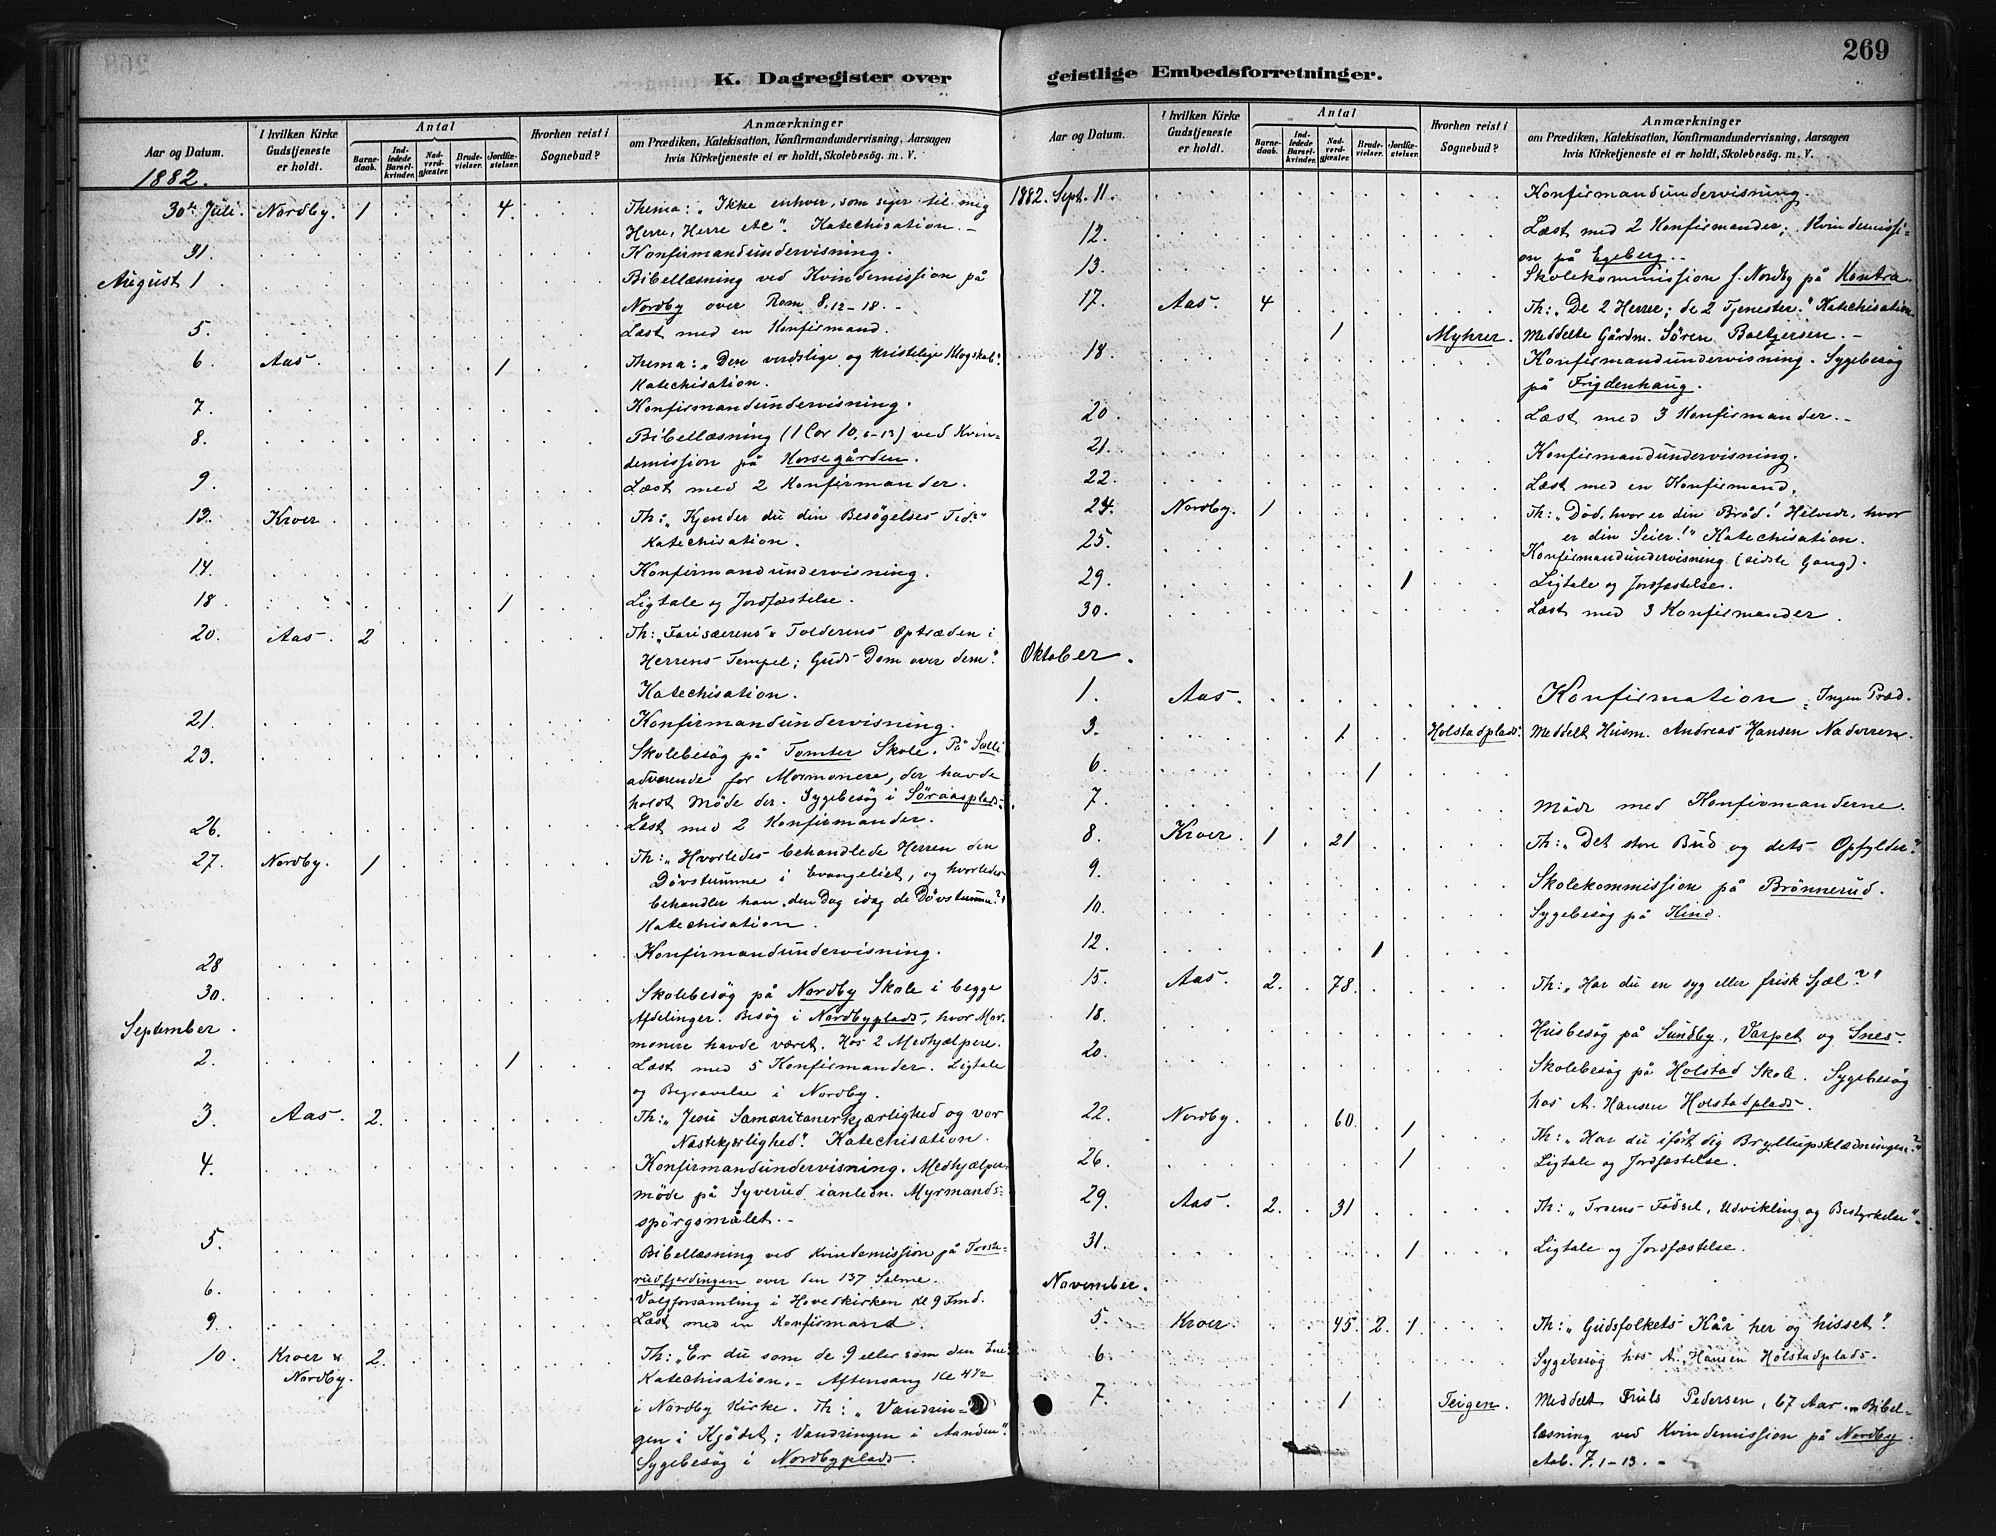 269
K. Dagregister over geistlige Embedsforretninger.
Aar og Datum.
I hvilken Kirke Gudstjeneste er holdt.
Antal
Barnedaab.
Indledede Barselkvinder.
Nadverdgjæster.
Brudevielser.
Jordfæstelser.
Hvorhen reist i Sognebud?
Anmærkninger
om Prædiken, Katekisation, Konfirmandundervisning, Aarsagen
hvis Kirketjeneste ei er holdt, Skolebesøg. m. V.
1882.
30te Juli. Nordby. 1 4. Thema: „Ikke enhver, som siger til mig
Herre, Herre etc". Katechisation. –
31. Konfirmandundervisning.
August 1 Bibellæsning ved Kvindemission på
Nordby over Rom 8. 12-18. –
5. Læst med en Konfirmand.
6. Aas. 1 Thema: „Den verdslige og kristelige Klogskab".
Katechisation.
7. Konfirmandundervisning.
8. Bibellæsning (1 Cor 10, 6-13) ved Kvin-
demission på Horsegården.
9. Læst med 2 Konfirmander.
13. Kroer. Th: „Kjender du din Besøgelses Tid?"
Katechisation.
14. Konfirmandundervisning.
18. 1 Ligtale og Jordfæstelse.
20. Aas. 2 Th: „Farisæerens & Tolderens Optræden i
Herrens Tempel; Guds Dom over dem".
Katechisation.
21. Konfirmandundervisning.
23. Skolebesøg på Tomter Skole. På Solli
advarende for Mormonere, der havde
holdt Møde der. Sygebesøg i Søraasplads.
26. Læst med 2 Konfirmander.
27. Nordby. 1 Th: „Hvorledes behandlede Herren den
Døvstumme i Evangeliet, og hvorledes
behandler han den Dag idag de Døvstumme?"
Katechisation.
28 Konfirmandundervisning.
30. Skolebesøg på Nordby Skole i begge
Afdelinger. Besøg i Nordbyplads, hvor Mor-
monere havde været. Hos 2 Medhjælpere.
September.
2. 1 Læst med 5 Konfirmander. Ligtale
og Begravelse i Nordby.
3. Aas. 2. Th: „Jesu Samaritanerkjærlighed og vor
Næstekjærlighed". Katechisation.
4. Konfirmandundervisning. Medhjælper-
møde på Syverud ianledn. Myrmands-
spørgsmålet. –
5. Bibellæsning ved Kvindemission på Froste-
rudfjerdingen over den 137 Salme.
6. Valgforsamling i Hovedkirken Kl 9 Fmd.
9. Læst med en Konfirmand
10. Kroer & Nordby. 2. Th: „Er du som de 9 eller som den Ene?"
Katechisation. – Aftensang Kl 4½
i Nordby Kirke. Th: „Vandrin-
gen i Kjødet; Vandringen i Aanden".
Sygebesøg i Nordbyplads.
Aar og Datum.
I hvilken Kirke Gudstjeneste er holdt.
Antal
Barnedaab.
Indledede Barselkvinder.
Nadverdgjæster.
Brudevielser.
Jordfæstelser.
Hvorhen reist i Sognebud?
Anmærkninger
om Prædiken, Katekisation, Konfirmandundervisning, Aarsagen
hvis Kirketjeneste ei er holdt, Skolebesøg. m. V.
1882. Sept. 11. Konfirmandundervisning.
12. Læst med 2 Konfirmander; Kvindemissi-
on på Egeberg. –
13. Skolekommission f. Nordby på Kontra.
17. Aas. 4 Th: „De 2 Herrer; de 2 Tjenester". Katechisation.
1 Myhrer. Meddelte Gårdm. Søren Baltzersen. –
18. Konfirmandundervisning. Sygebesøg
på Frydenhaug.
20. Læst med 3 Konfirmander. –
21. Konfirmandundervisning.
22. Læst med en Konfirmand.
24. Nordby. 1 Th: „Død, hvor er din Bråd! Helvede, hvor
er din Seier!" Katechisation.
25. Konfirmandundervisning (sidste Gang).
29. 1 Ligtale og Jordfæstelse.
30. Læst med 3 Konfirmander.
Oktober.
1. Aas. Konfirmation. Ingen Præd.
3. 1 Holstadplads. Meddelt Husm. Andreas Hansen Nadveren.
6. 1
7. Møde med Konfirmanderne.
8. Kroer. 1 21 Th: „Det store Bud og dets Opfylder".
9. Skolekommission på Brønnerud.
10. Sygebesøg på Kind.
12. 1
15. Aas. 2. 78. Th: „Har du en syg eller frisk Sjæl?"
18. Husbesøg på Sundby, Varpet og Snes.
20. Skolebesøg på Holstad Skole. Sygebesøg
hos A. Hansen Holstadplads.
22. Nordby. 60. 1 Th: „Har du iført dig Bryllupsklædningen?"
26. 1 Ligtale og Jordfæstelse.
29. Aas. 2. 31 Th: „Troens Fødsel, Udvikling og Bestyrkelse".
31. 1 Ligtale og Jordfæstelse.
November.
5. Kroer. 45. 2. 1. Th: „Gudsfolkets Kår her og hisset".
6. Sygebesøg hos A. Hansen Holstadplads.
7. 1 Teigen. Meddelt Truls Pedersen, 67 Aar. – Bibel-
læsning ved Kvindemission på Nordby.
Aab. 7. 1-13. –